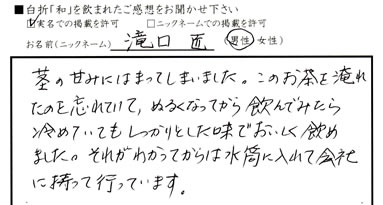 ■白折「和」を飲まれたご感想をお聞かせ下さい
☑実名での掲載を許可 □ニックネームでの掲載を許可
お名前(ニックネーム) 滝口 匠 (男性・女性)
茎の甘みにはまってしまいました。このお茶を淹れ
たのを忘れていて、ぬるくなってから飲んでみたら
冷めていてもしっかりとした味でおいしく飲め
ました。それがわかってからは水筒に入れて会社
に持って行っています。